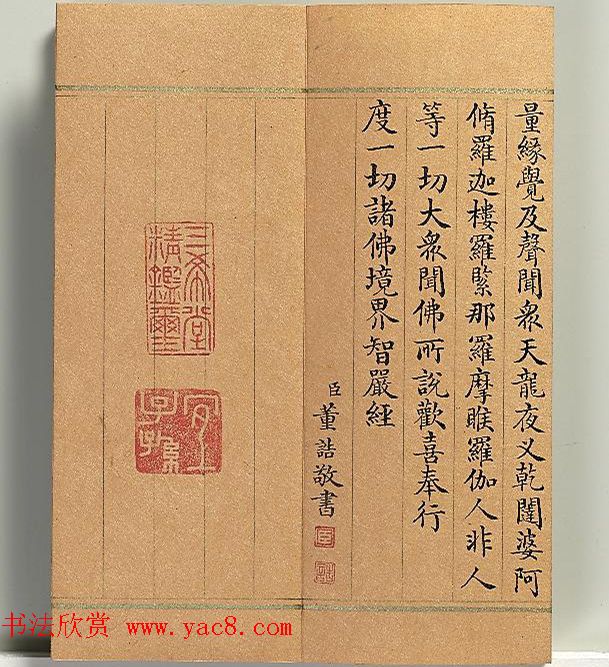 量緣覺及聲聞眾天龍夜义乾闥婆阿
脩羅迦樓羅緊那羅摩睺羅伽人非人
等一切大眾聞佛所說歡喜奉行
度一切諸佛境界智嚴經
臣董誥敬書
臣
誥
三希堂
精鑑璽
宜
子孫
书法欣赏 www.yac8.com